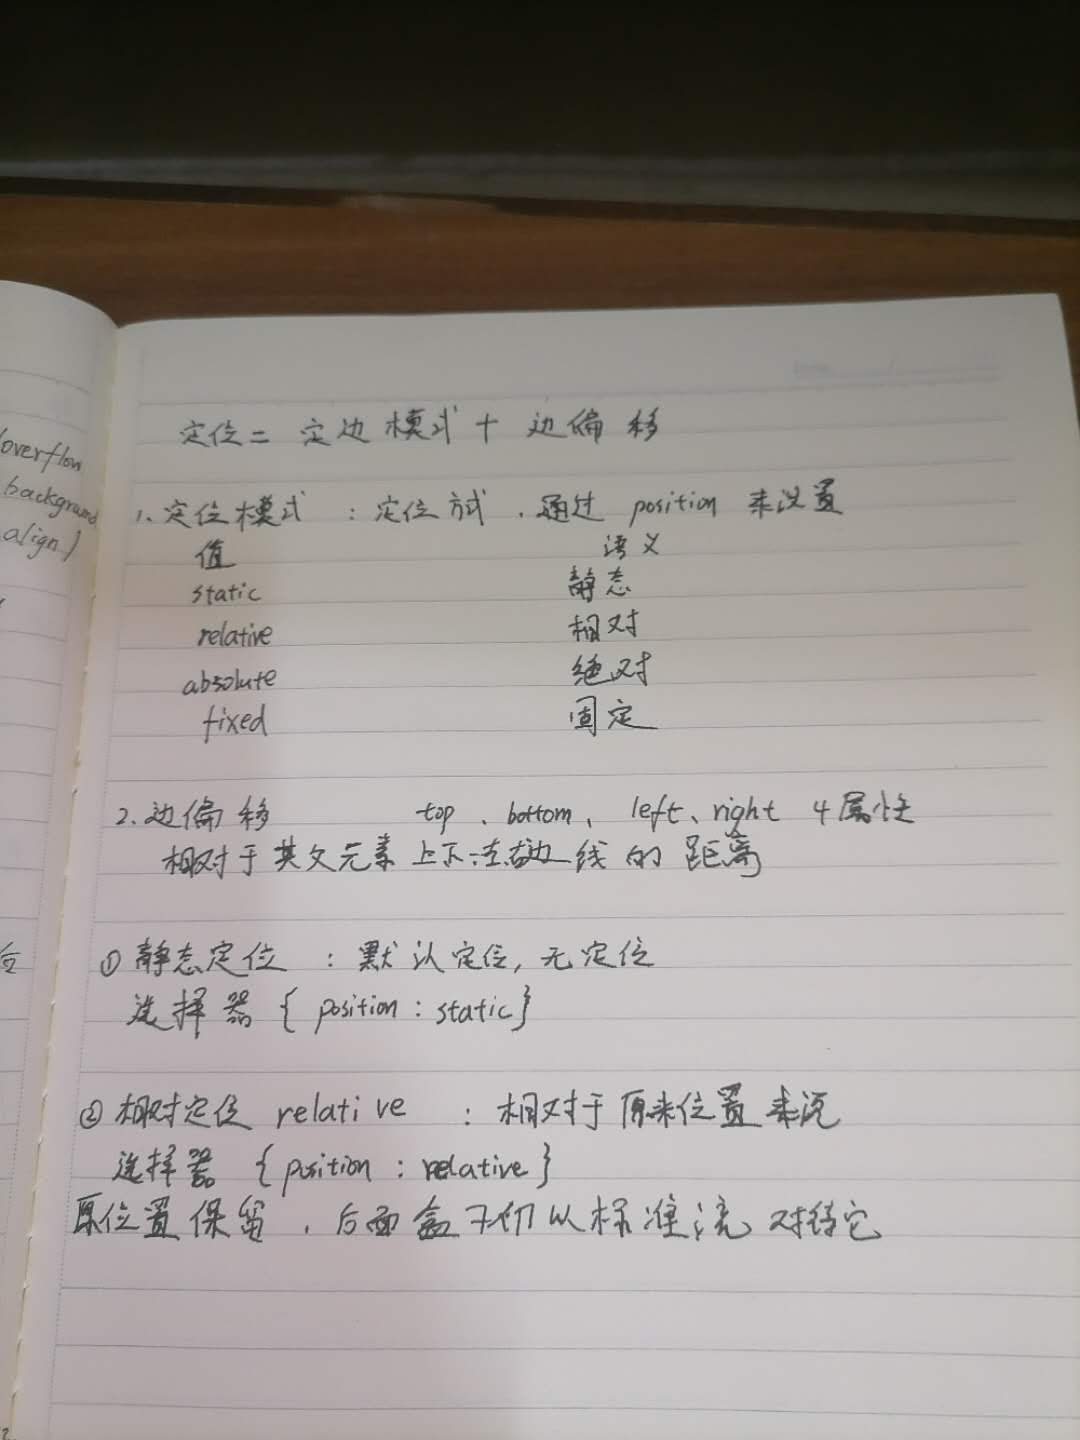 overflow
background
align)
定位 = 定边模式 + 边偏移
1、定位模式 : 定位方式 , 通过 position 来设置
值 语义
static 静态
relative 相对
absolute 绝对
fixed 固定
2、边偏移 top 、bottom、 left、right 4属性
相对于其父元素上下左右边线的距离
① 静态定位 : 默认定位, 无定位
选择器 { position : static}
② 相对定位 relative : 相对于原来位置来说
选择器 {position : relative}
原位置保留 , 后面盒子仍以标准流对待它